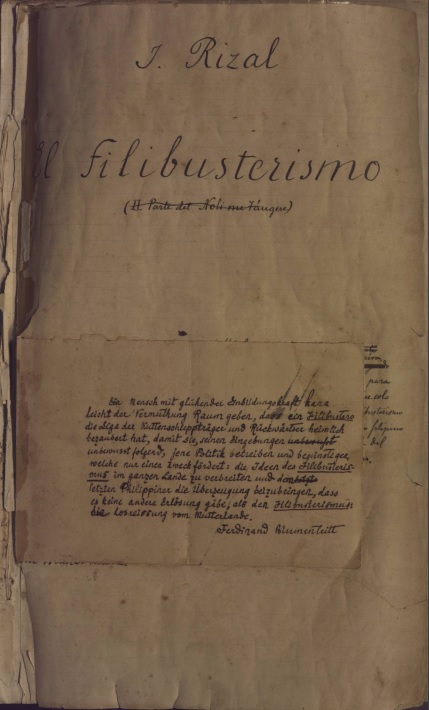 J. Rizal
El Filibusterismo
(II. Parte del Noli me tángere)
Ein Mensch mit glühender Einbildungskraft kann
leicht der Vermuthung Raum geben, dass ein Filibustero
die Liga der Kuttenschleppträger und Rückwärtser heimlich
bezaubert hat, damit sie, seinen Eingebungen unbewußt
unbewusst folgend, jene Politik betreiben und begünstigen,
welche nur einen Zweck fördert: die Ideen des Filibusteris-
mus im ganzen Lande zu verbreiten und dem
letzten Philippiner die Überzeugung beizubringen, dass
es keine andere Erlösung gäbe, als den Filibusterismus:
die Losreissung vom Mutterlande.
Ferdinand Blumentritt
para
solo
del